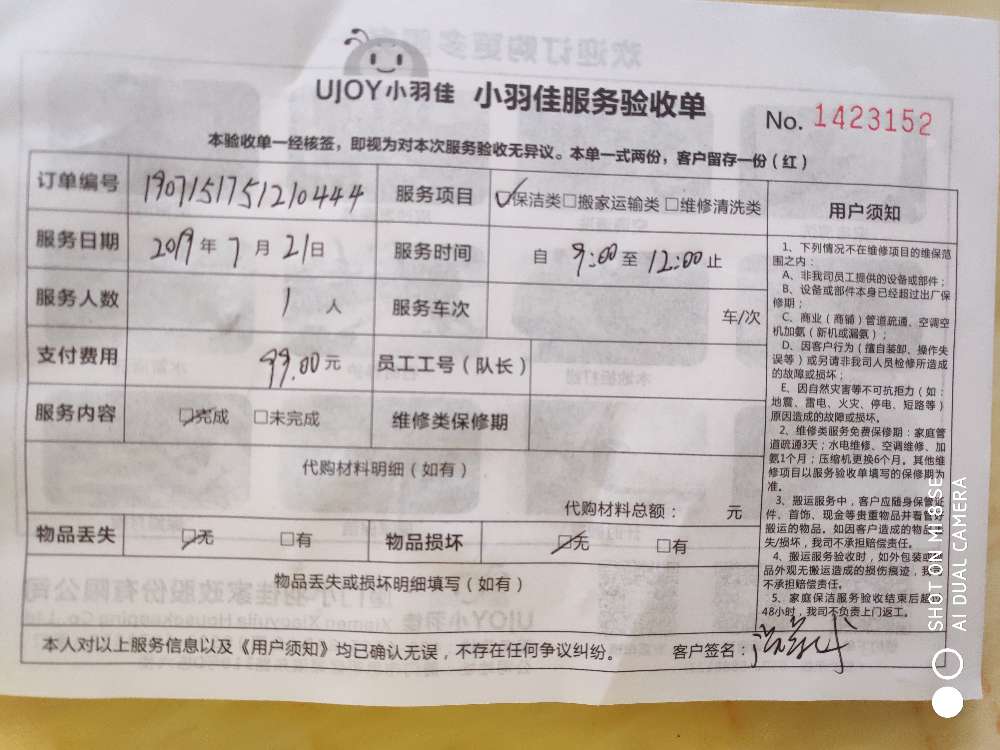 UJOY小羽佳 小羽佳服务验收单
No. 1423152
本验收单一经核签，即视为对本次服务验收无异议。本单一式两份，客户留存一份（红）
订单编号 1907151751210444 服务项目 ☑保洁类□搬家运输类□维修清洗类
服务日期 2019年7月21日 服务时间 自 9:00至12:00止
服务人数 1 人 服务车次 车/次
支付费用 99.00元 员工工号（队长）
服务内容 ☑完成 □未完成 维修类保修期
代购材料明细（如有）
代购材料总额： 元
物品丢失 ☑无 □有 物品损坏 ☑无 □有
物品丢失或损坏明细填写（如有）
本人对以上服务信息以及《用户须知》均已确认无误，不存在任何争议纠纷。 客户签名：
用户须知
1、下列情况不在维修项目的维保范
围之内：
A、非我司员工提供的设备或部件；
B、设备或部件本身已经超过出厂保
修期；
C、商业（商铺）管道疏通、空调空
机加氨（新机或漏氨）；
D、因客户行为（擅自装卸、操作失
误等）或另请非我司人员检修所造成
的故障或损坏；
E、因自然灾害等不可抗拒力（如：
地震、雷电、火灾、停电、短路等）
原因造成的故障或损坏。
2、维修类服务免费保修期：家庭管
道疏通3天；水电维修、空调维修、加
氨1个月；压缩机更换6个月。其他维
修项目以服务验收单填写的保修期为
准。
3、搬运服务中，客户应随身保管证
件、首饰、现金等贵重物品并看管好
搬运的物品。如因客户造成的物品丢
失/损坏，我司不承担赔偿责任。
4、搬运服务验收时，如外包装或
品外观无搬运造成的损伤痕迹，我
不承担赔偿责任。
5、家庭保洁服务验收结束后超
48小时，我司不负责上门返工。
SHOT ON MI 8 SE
AI DUAL CAMERA